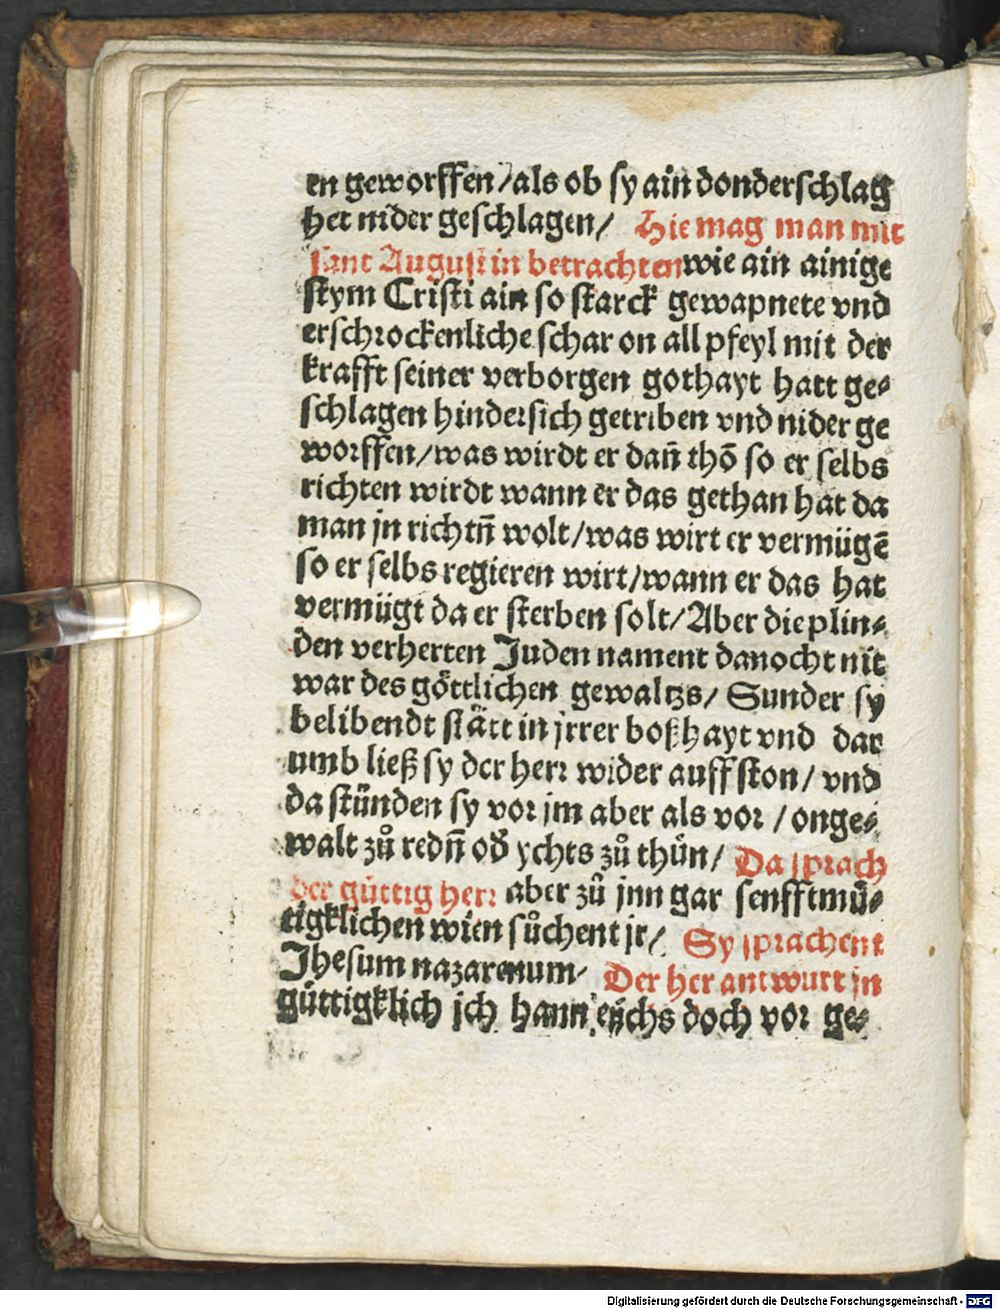 en geworffen/als ob sy ain donderschlag
het nider geschlagen/ Hie mag man mit
sant Augustin betrachten wie ain ainige
stym Cristi ain so starck gewapnete vnd
erschrockenliche schar on all pfeyl mit der
krafft seiner verborgen gothayt hatt ge⸗
schlagen hindersich getriben vnd nider ge
worffen/was wirdt er dañ thõ so er selbs
richten wirdt wann er das gethan hat da
man jn richtñ wolt/was wirt er vermügẽ
so er selbs regieren wirt/wann er das hat
vermügt da er sterben solt/Aber die plin⸗
den verherten Juden nament danocht nit
war des göttlichen gewaltzs/ Sunder sy
belibendt stätt in jrrer boßhayt vnd dar
umb ließ sy der herr wider auff ston/ vnd
da stünden sy vor jm aber als vor /on ge⸗
walt zů redñ od̃ ychts zů thün/ Da sprach
der güttig herr aber zů jnn gar senfftmü⸗
tigklichen wien sůchent jr/ Sy sprachent
Jhesum nazarenum/ Der her antwurt jn
güttigklich jch hann eüchs doch vor ge⸗
Digitalisierung gefördert durch die Deutsche Forschungsgemeinschaft - DFG